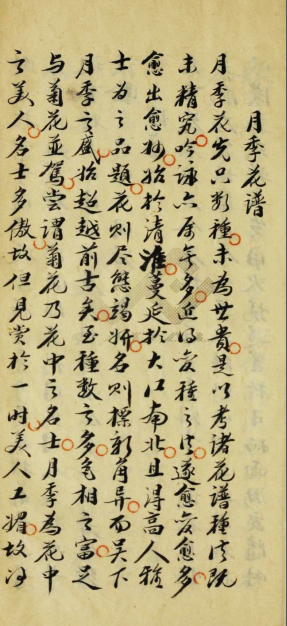 月季花譜
月季花先只數種未為世貴是以考諸花譜種法既
未精究吟詠亦屬無多近得變種之法遂愈變愈多
愈出愈妙始於清淮蔓延於大江南北且得高人雅
士為之品題花則尽態竭妍名則標新角異而吴下
月季之盛始超越前古矣至種數之多色相之富足
与菊花並駕尝谓菊花乃花中之名士月季為花中
之美人名士多傲故但見赏於一时美人工媚故得